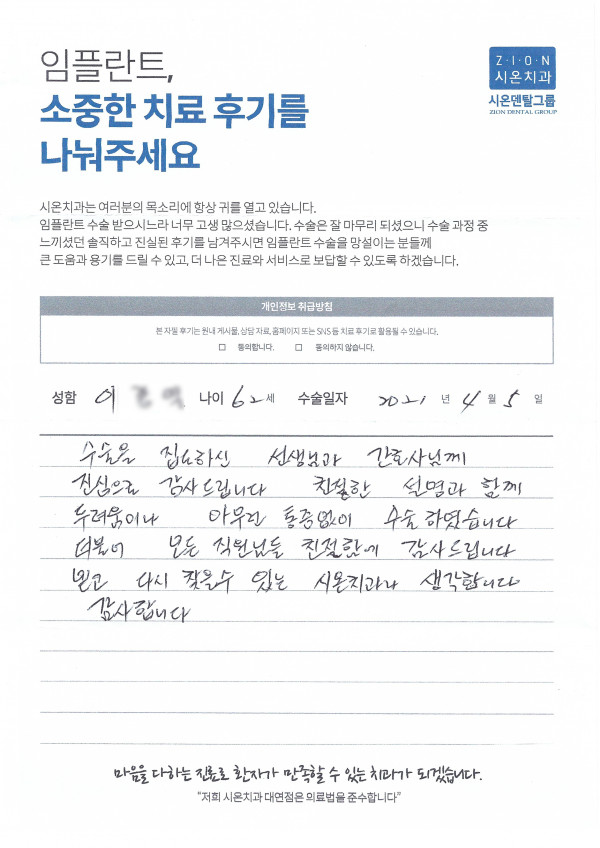 임플란트,
소중한 치료 후기를
나눠주세요
Z·I·O·N
시온치과
시온덴탈그룹
ZION DENTAL GROUP
시온치과는 여러분의 목소리에 항상 귀를 열고 있습니다.
임플란트 수술 받으시느라 너무 고생 많으셨습니다. 수술은 잘 마무리 되셨으니 수술 과정 중
느끼셨던 솔직하고 진실된 후기를 남겨주시면 임플란트 수술을 망설이는 분들께
큰 도움과 용기를 드릴 수 있고, 더 나은 진료와 서비스로 보답할 수 있도록 하겠습니다.
개인정보 취급방침
본 자필 후기는 원내 게시물, 상담 자료, 홈페이지 또는 SNS 등 치료 후기로 활용될 수 있습니다.
☐ 동의합니다. ☐ 동의하지 않습니다.
성함 이 나이 62 세 수술일자 2021 년 4 월 5 일
수술을 집도하신 선생님과 간호사님께
진심으로 감사드립니다 친절한 설명과 함께
두려움이나 아무런 통증없이 수술 하였습니다
더불어 모든 직원님들 친절함에 감사드립니다
믿고 다시 찾을수 있는 시온치과라 생각합니다
감사합니다
마음을 다하는 진료로 환자가 만족할 수 있는 치과가 되겠습니다.
"저희 시온치과 대연점은 의료법을 준수합니다"